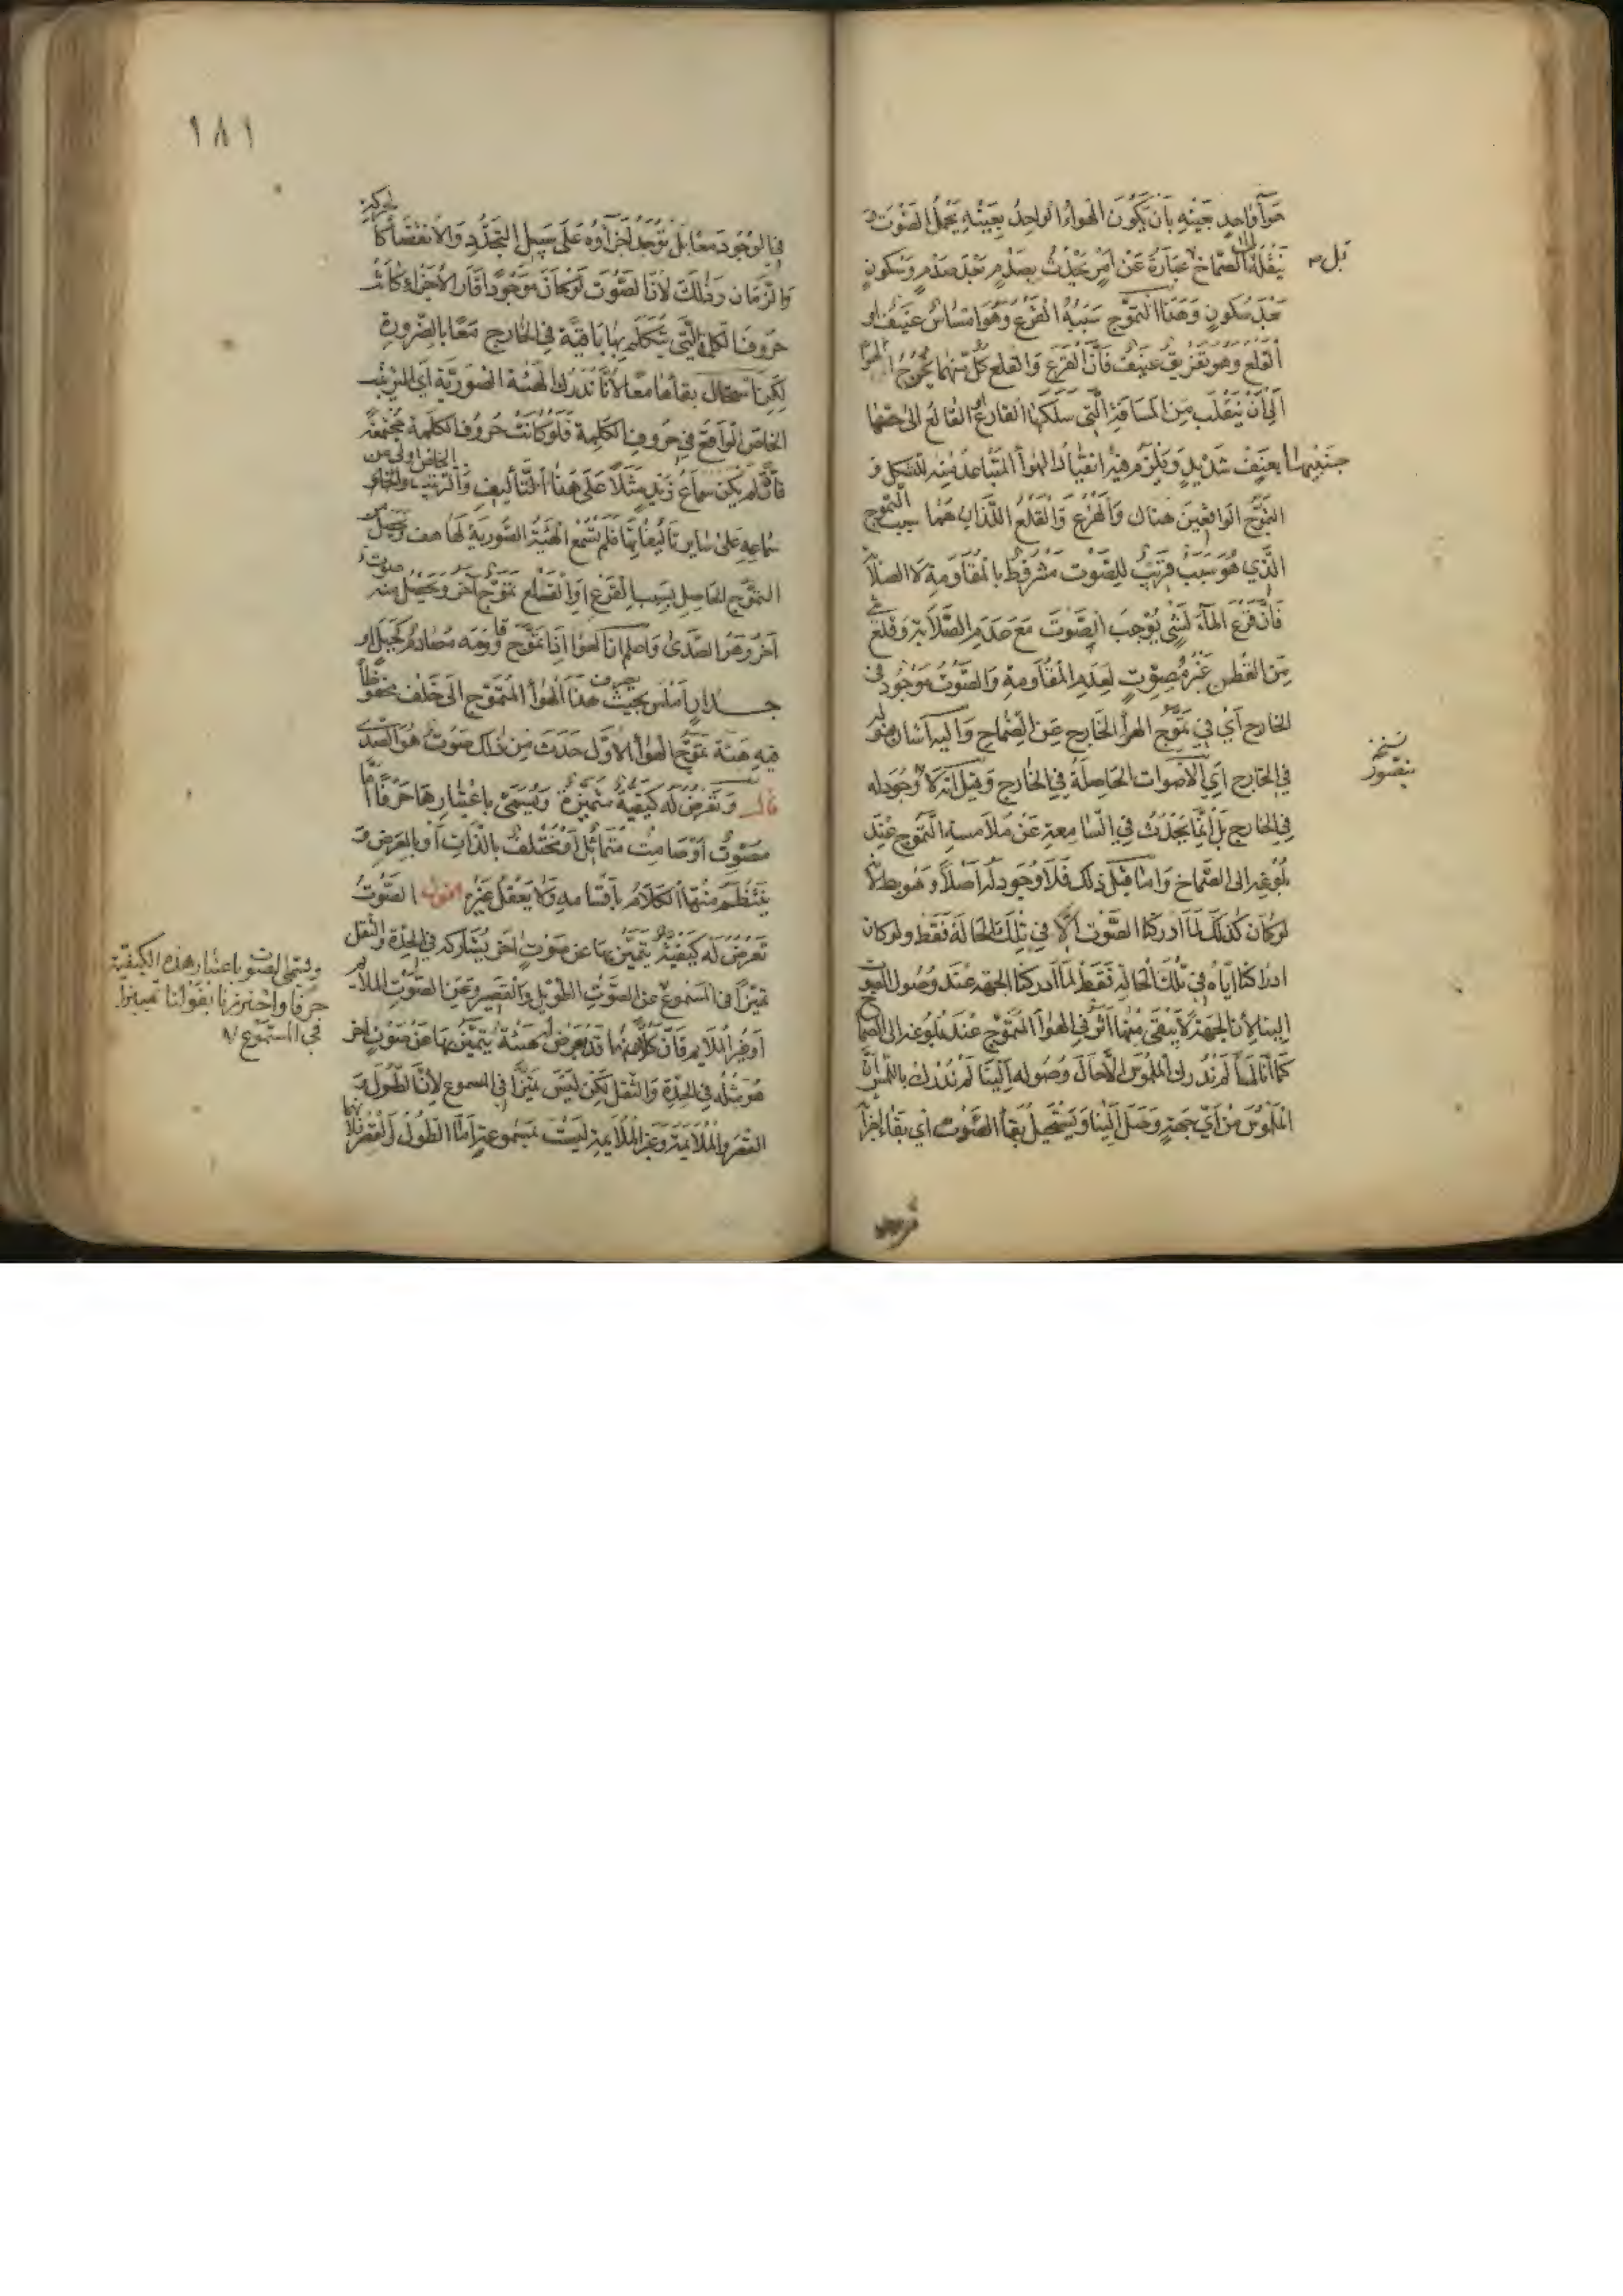 هواء واحد بعينه بان يكون الهواء الواحد بعينه يحمل الصوت و
ينقله الى الصماخ عبارة عن امر يحدث بصدم بعد صدم وسكون
بل
بعد سكون وهذا التموج سببه القرع وهو امساس عنيف او
القلع وهو تفريق عنيف فان القرع والقلع كل منهما يحوج الهواء
الى ان ينقلب من المسافة التي سلكها القارع القالع الى
جنبيها بعنف شديد ويلزم فيه انقياد الهواء المتباعد منه للشكل و
التموج الواقعين هناك والقرع والقلع اللذان هما سبب التموج
الذي هو سبب قريب للصوت مشروط بالمقاومة لا الصلابة
فان قرع الماء لشيء يوجب الصوت مع عدم الصلابة وقلع شيء
من القطن غير مصوت لعدم المقاومة والصوت موجود في
الخارج اي في تموج الهواء الخارج عن الصماخ واليه اشار بقوله
نسخة
في الخارج اي الاصوات الحاصلة في الخارج وقيل انه لا وجود له
في الخارج بل انما يحدث في السامعة عن ملامسة التموج عند
بلوغه الى الصماخ واما قبل ذلك فلا وجود له اصلا وهو بط لانه
لو كان كذلك لما ادركنا الصوت الا في تلك الحالة فقط ولو كان
ادراكنا اياه في تلك الحالة فقط لما ادركنا الجهة عند وصول الصوت
الينا لان الجهة لا يبقى منها اثر في الهواء المتموج عند بلوغه الى الصماخ
كما انا لما لم ندرك الملموس الا حال وصوله الينا لم ندرك باللمس ان
الملموس من اي جهة وصل الينا ويستحيل بقاء الصوت اي بقاء اجزائه
في الوجود معا بل توجد اجزاؤه على سبيل التجدد والانقضاء كالحركة
والزمان وذلك لان الصوت لو كان موجودا قار الاجزاء كانت
حروف الكلمة التي يتكلم بها باقية في الخارج معا بالضرورة
لكن استحال بقاءها معا لانا ندرك الهيئة الصورية اي الترتيب
الخاص الواقع في حروف الكلمة فلو كانت حروف الكلمة مجتمعة
فان لم يكن سماع زيد مثلا على هذا التاليف والترتيب الخاص اولى من
سماعه على سائر تاليفاتها فلم تسمع الهيئة الصورية لها هف ويحصل من
التموج الحاصل بسبب القرع او القلع تموج آخر ويحصل منه صوت
آخر وهو الصدى واعلم ان الهواء اذا تموج وقاومه مصادم كجبل او
جدار املس بحيث يصرف هذا الهواء المتموج الى خلف محفوظا
فيه هيئة تموج الهواء الاول حدث من ذلك صوت هو الصدى
قال وتعرض له كيفية متميزة ويسمى باعتبارها حرفا اما
مصوت او صامت متماثل او مختلف بالذات او بالعرض و
ينتظم منها الكلام باقسامه ولا يعقل غيره اقول الصوت
تعرض له كيفية يتميز بها عن صوت اخر يشاركه في الحدة والثقل
تميزا في المسموع عن الصوت الطويل والقصير وعن الصوت الملائم
او غير الملائم فان كلا منهما قد يعرض له هيئة يتميز بها عن صوت آخر
هو مثله في الحدة والثقل لكن ليس تميزا في المسموع لان الطول و
القصر والملائمة وغير الملائمة ليست بمسموعة اما الطول والقصر فلانهما
ويسمى الصوت باعتبار هذه الكيفية
حرفا واحترزنا بقولنا تميزا
في المسموع
١٨١